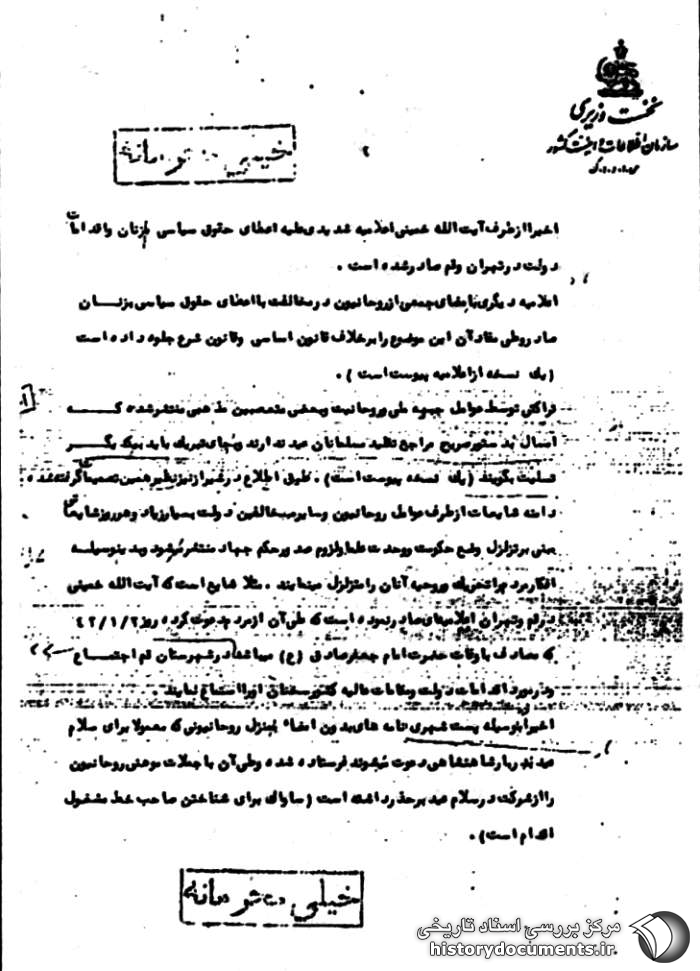 نخست وزیری
سازمان اطلاعات و امنیت کشور
س.ا.و.ا.ک
خیلی محرمانه
۲
اخیرا از طرف آیت الله خمینی اعلامیه شدیدی علیه اعطای حقوق سیاسی بزنان و اقدامات
دولت در تهران و قم صادر شده است .
اعلامیه دیگری با مضای جمعی از روحانیون در مخالفت با اعطای حقوق سیاسی بزنان
صادر و طی مفاد آن این موضوع را بر خلاف قانون اساسی و قانون شرع جلوه داده است
( یک نسخه از اعلامیه پیوست است ) .
تراکتی توسط عوامل جبهه ملی و روحانیت و بعضی متعصبین مذهبی منتشر شده که
امسال بدستور صریح مراجع تقلید مسلمانان عید ندارند و بجای تبریک باید بیکدیگر
تسلیت بگویند ( یک نسخه پیوست است ) . طبق اطلاع در شیراز نیز نظیر همین تصمیمات گرفته شده
دامنه شایعات از طرف عوامل روحانیون و سایر مخالفین دولت بسیار زیاد و هر روز شایعاتی
مبنی بر تزلزل وضع حکومت و وحدت علما و لزوم صدور حکم جهاد منتشر میشود و بدینوسیله
افکار مردم را تحریک و روحیه آنان را متزلزل مینمایند . مثلا شایع است که آیت الله خمینی
در قم و تهران اعلامیه‌ای صادر نموده است که طی آن از مردم دعوت کرده روز ۴۲/۱/۲
که مصادف با وفات حضرت امام جعفر صادق (ع) میباشد در شهرستان قم اجتماع
و در مورد اقدامات دولت و مقامات عالیه کشور سخنان او را استماع نمایند .
اخیرا بوسیله پست شهری نامه های بدون امضاء بمنزل روحانیونی که معمولا برای سلام
عید بدربار شاهنشاهی دعوت میشوند فرستاده شده و طی آن با جملات موهنی روحانیون
را از شرکت در سلام عید بر حذر داشته است ( ساواک برای شناختن صاحب خط مشغول
اقدام است ) .
خیلی محرمانه
مرکز بررسی اسناد تاریخی
historydocuments.ir